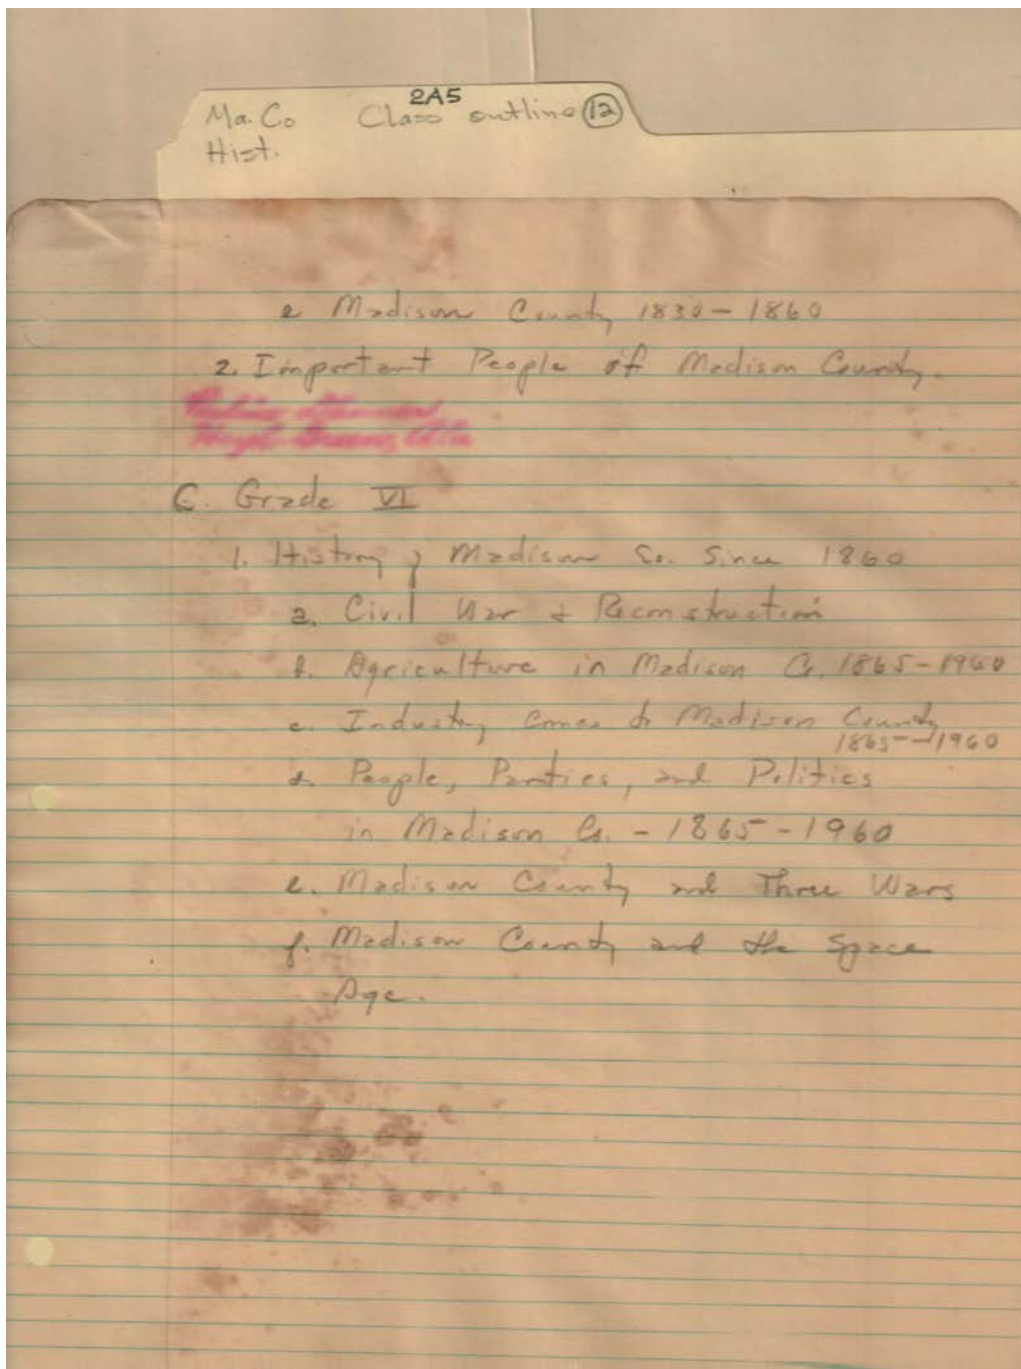 2A5
Ma. Co Class outline 12
Hist.
e Madison County 1830-1860
2. Important People of Madison County.
C. Grade VI
1. History of Madison Co. Since 1860
a. Civil War & Reconstruction
b. Agriculture in Madison Co. 1865-1960
c. Industry Comes to Madison County
1865-1960
d. People, Parties, and Politics
in Madison Co. - 1865-1960
e. Madison County and Three Wars
f. Madison County and the Space
Age.